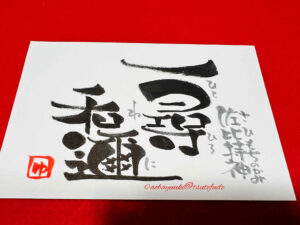 さひもちのかみ
佐比持神
ひとひろ
一尋
わに
和邇
©aobayuuki@tsutefude